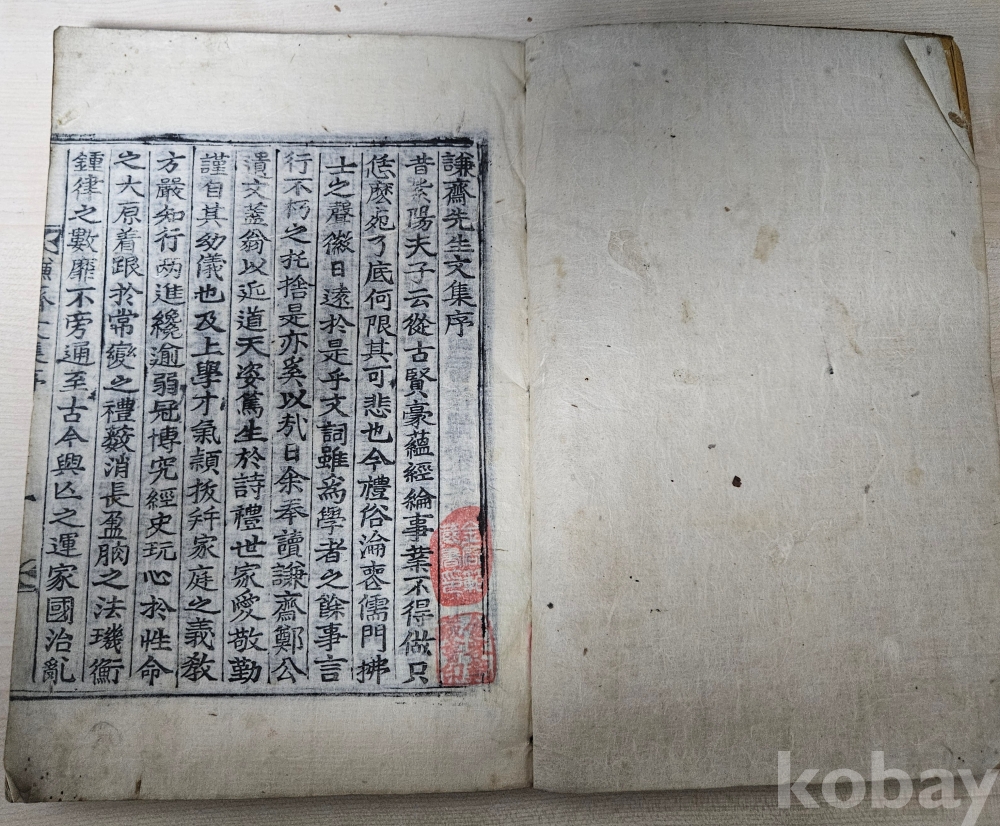 謙齋先生文集序
昔紫陽夫子云從古賢豪蘊經綸事業不得做只
恁麽宛了底何限其可悲也今禮俗淪喪儒門拂
士之聲徽日遠於是乎文詞雖爲學者之餘事言
行不朽之托捨是亦奚以哉日余奉讀謙齋鄭公
遺文蓋翁以近道天姿篤生於詩禮世家愛敬勤
謹自其幼儀也及上學才氣穎拔幷家庭之義教
方嚴知行两進纔逾弱冠博究經史玩心於性命
之大原着跟於常變之禮數消長盈朒之法璣衡
鍾律之數靡不旁通至古今興亡之運家國治亂
kobay